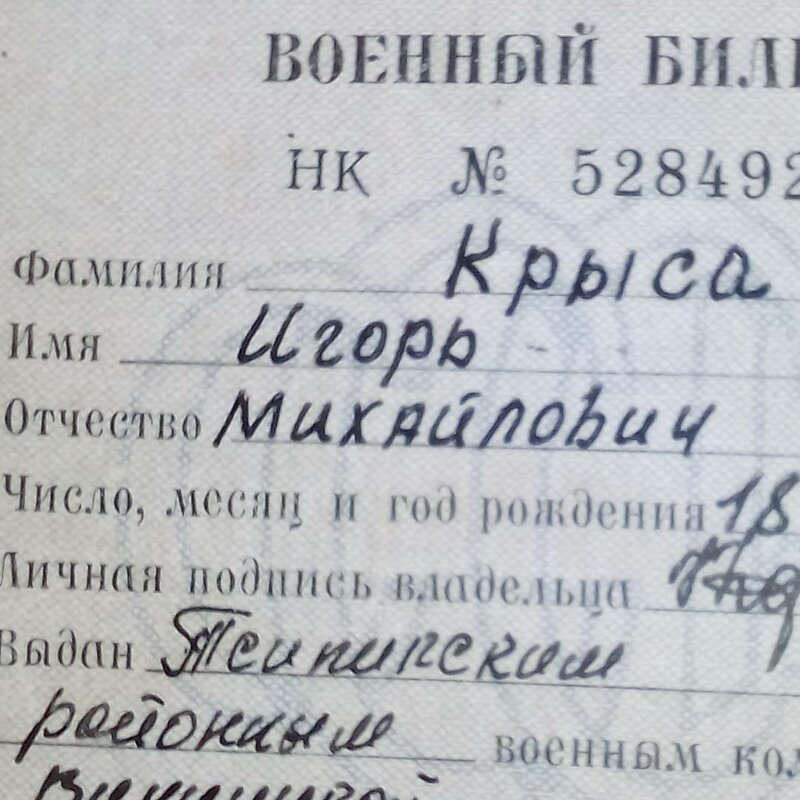 ВОЕННЫЙ БИЛЕ
НК № 528492
Фамилия Крыса
Имя Игорь
Отчество Михайлович
Число, месяц и год рождения 18
Личная подпись владельца
Выдан
районным военным ком